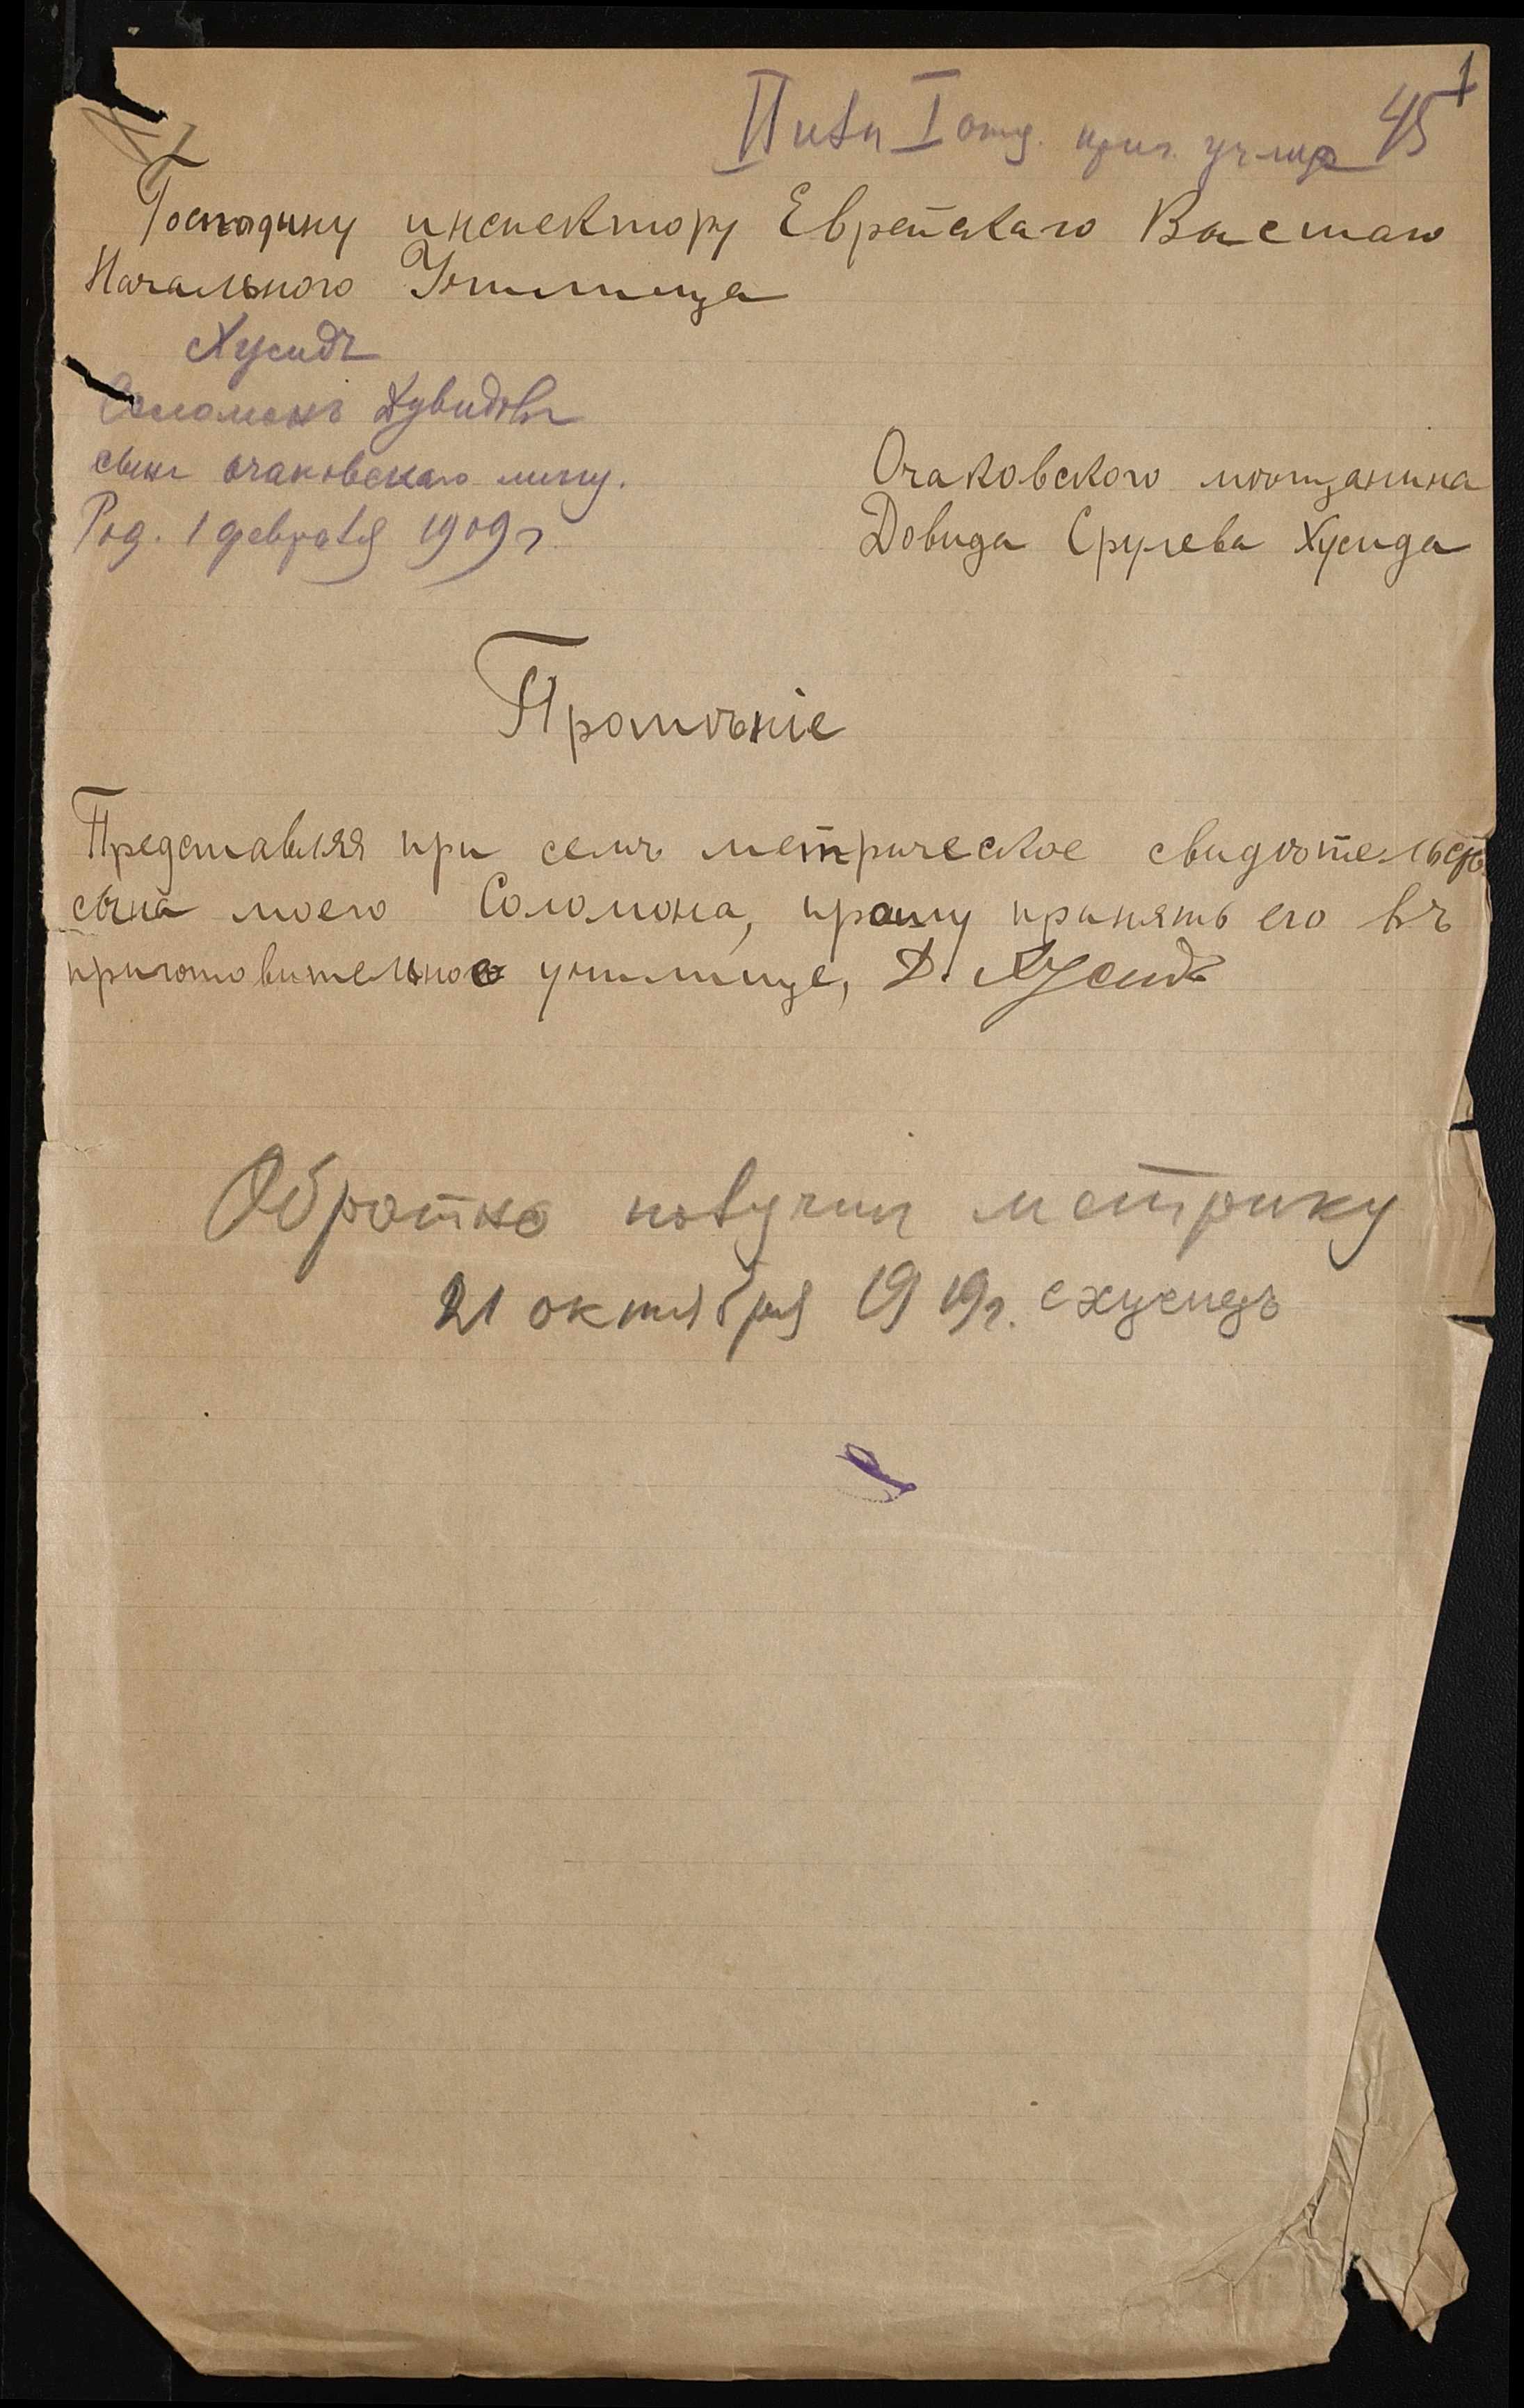 I отд. приг. учлщ 45 1
Господину инспектору Еврейскаго Высшаго
Начального Училища
Хусидъ
Соломонъ Дувидовъ
сынъ очаковскаго мѣщ.
Род. 1 февраля 1909 г.
Очаковского мѣщанина
Довида Срулева Хусида
Прошѣніе
Представляя при семъ метрическое свидѣтельств
сына моего Соломона, прошу принять его въ
приготовительное училище, Д. Хусидъ
Обратно получил метрику
21 октября 1919 г. С Хусидъ